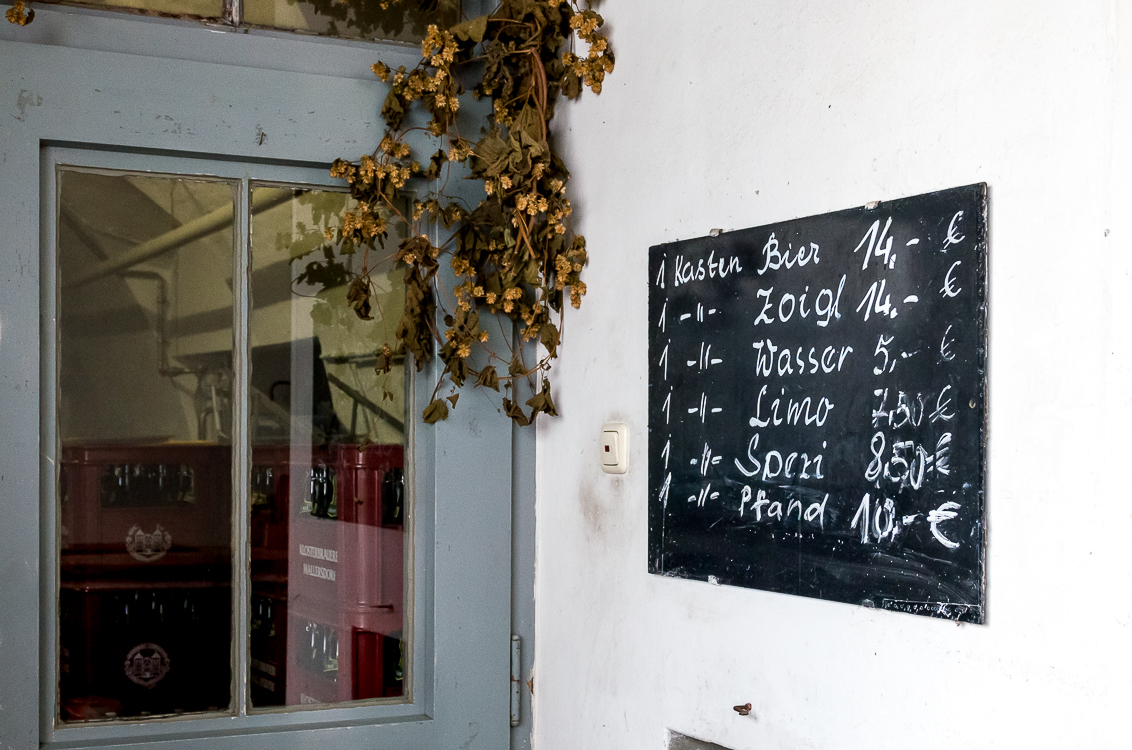 1 Kasten Bier 14,- €
1 -"- Zoigl 14,- €
1 -"- Wasser 5,- €
1 -"- Limo 7,50 €
1 -"- Spezi 8,50 €
1 -"- Pfand 10,- €
KLOSTERBRAUEREI
MALLERSDORF